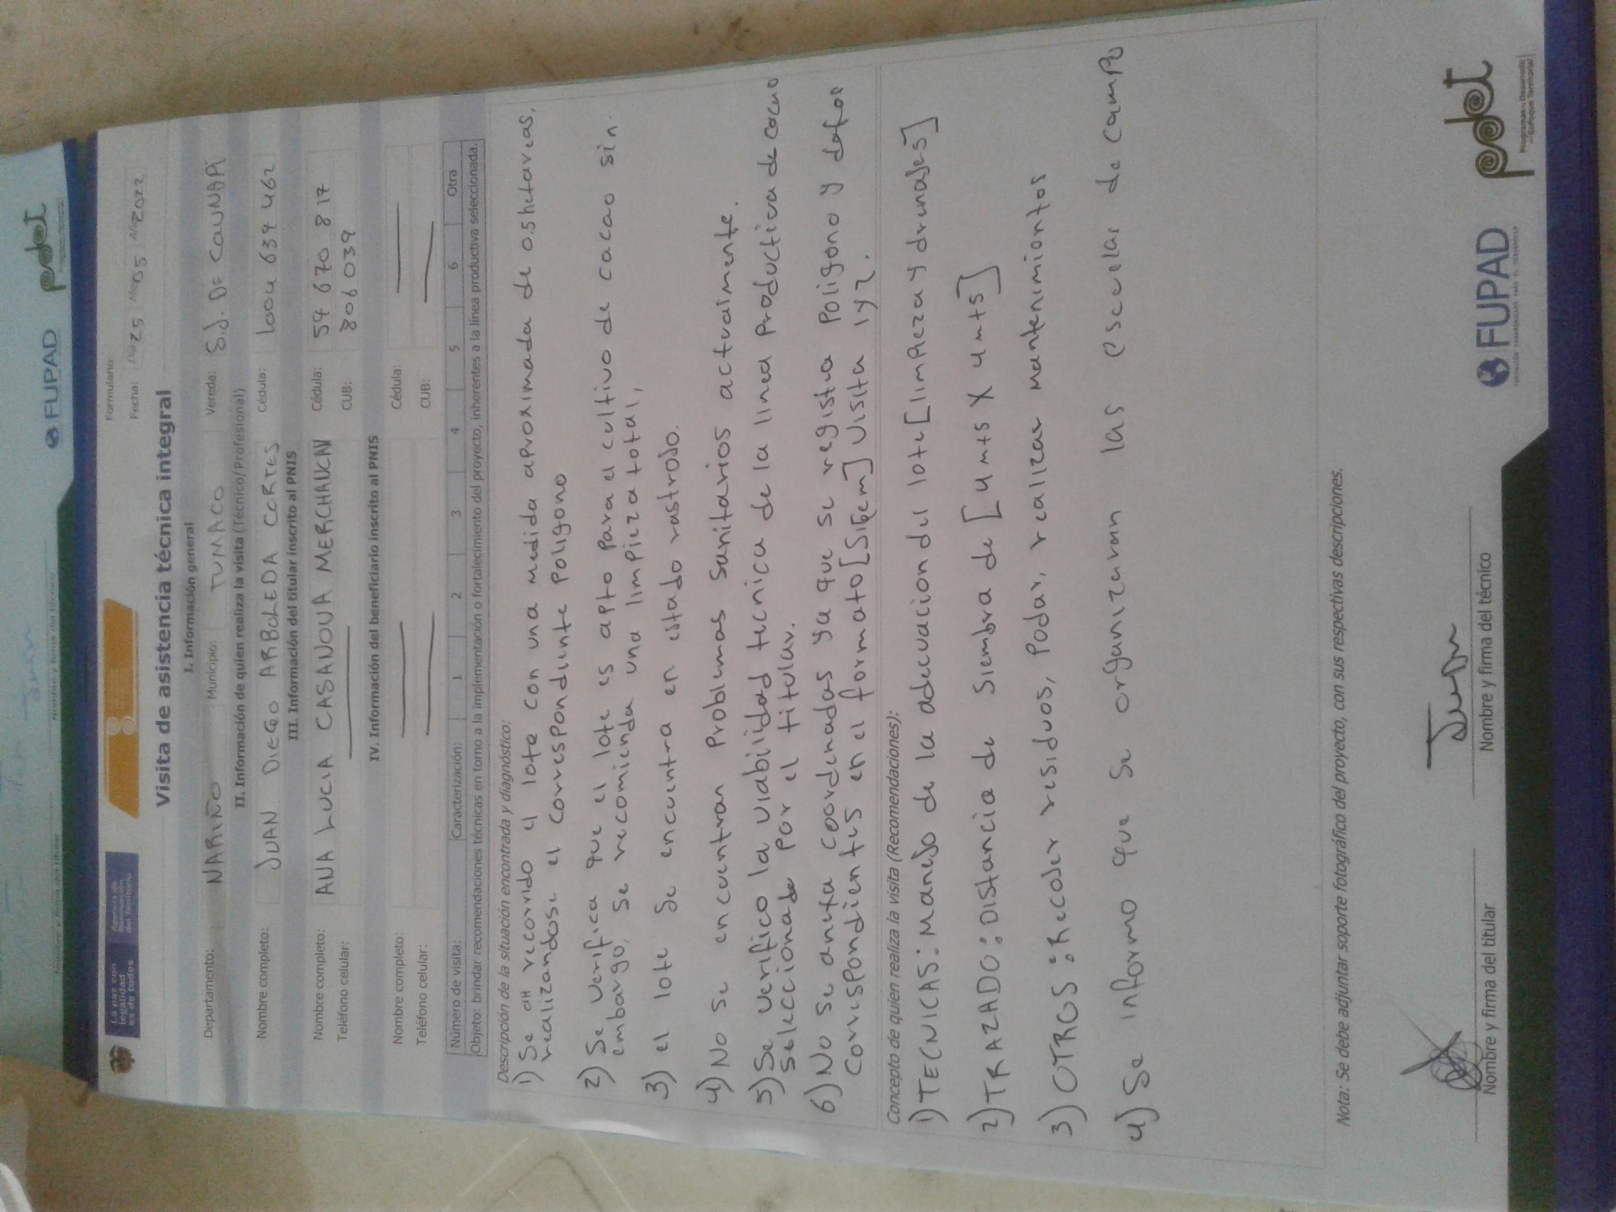 FUPAD pdet
Formulario:
Fecha: Día 25 Mes 05 Año 2022
La paz con
legalidad
es de todos
Agencia de
Renovación
del Territorio
Visita de asistencia técnica integral
I. Información general
Departamento: NARIÑO Municipio: TUMACO Vereda: S.J. DE CAUNAPÍ
II. Información de quien realiza la visita (Técnico/Profesional)
Nombre completo: JUAN DIEGO ARBOLEDA CORTES Cédula: 1004 639 462
III. Información del titular inscrito al PNIS
Nombre completo: ANA LUCIA CASANOVA MERCHANCAN Cédula: 59 670 817
Teléfono celular: CUB: 806039
IV. Información del beneficiario inscrito al PNIS
Nombre completo: Cédula:
Teléfono celular: CUB:
Número de visita: Caracterización: 1 2 3 4 5 6 Otra
Objeto: brindar recomendaciones técnicas en torno a la implementación o fortalecimiento del proyecto, inherentes a la línea productiva seleccionada.
Descripción de la situación encontrada y diagnóstico:
1) Se recorrido el lote con una medida aproximada de 0.5 hectareas,
realizandose el correspondiente poligono
2) Se Verifica que el lote es apto para el cultivo de cacao sin.
embargo, se recomienda una limpieza total,
3) el lote se encuentra en estado rastrojo.
4) No se encuentran Problemas sanitarios actualmente.
5) Se verifico la viabilidad tecnica de la linea Productiva de cacao
seleccionada por el titular.
6) No se anexa coordenadas ya que se registra Poligono y datos
correspondientes en el formato [Sigem] Visita 1 y 2.
Concepto de quien realiza la visita (Recomendaciones):
1) TECNICAS: Manejo de la adecuacion del lote [limpieza y drenajes]
2) TRAZADO: Distancia de siembra de [4 mts X 4 mts]
3) OTROS: Recoger residuos, Podar, realizar mantenimientos
4) Se informo que se organizaran las escuelas de campo
Nota: Se debe adjuntar soporte fotográfico del proyecto, con sus respectivas descripciones.
Juan
Nombre y firma del titular Nombre y firma del técnico
FUPAD pdet
Programas de Desarrollo
con Enfoque Territorial